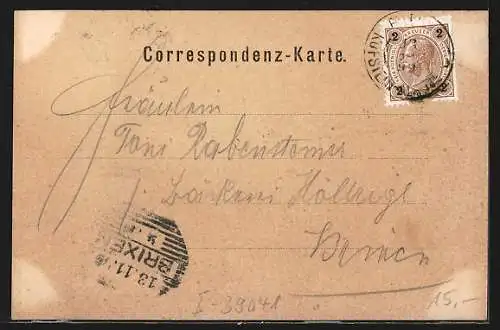 2 2
2 2
Correspondenz-Karte.
KUFSTEIN
Fräulein
Toni Rabensteiner
Bäckerei
Brixen
BRIXEN
13.11.
I-39041
15,-